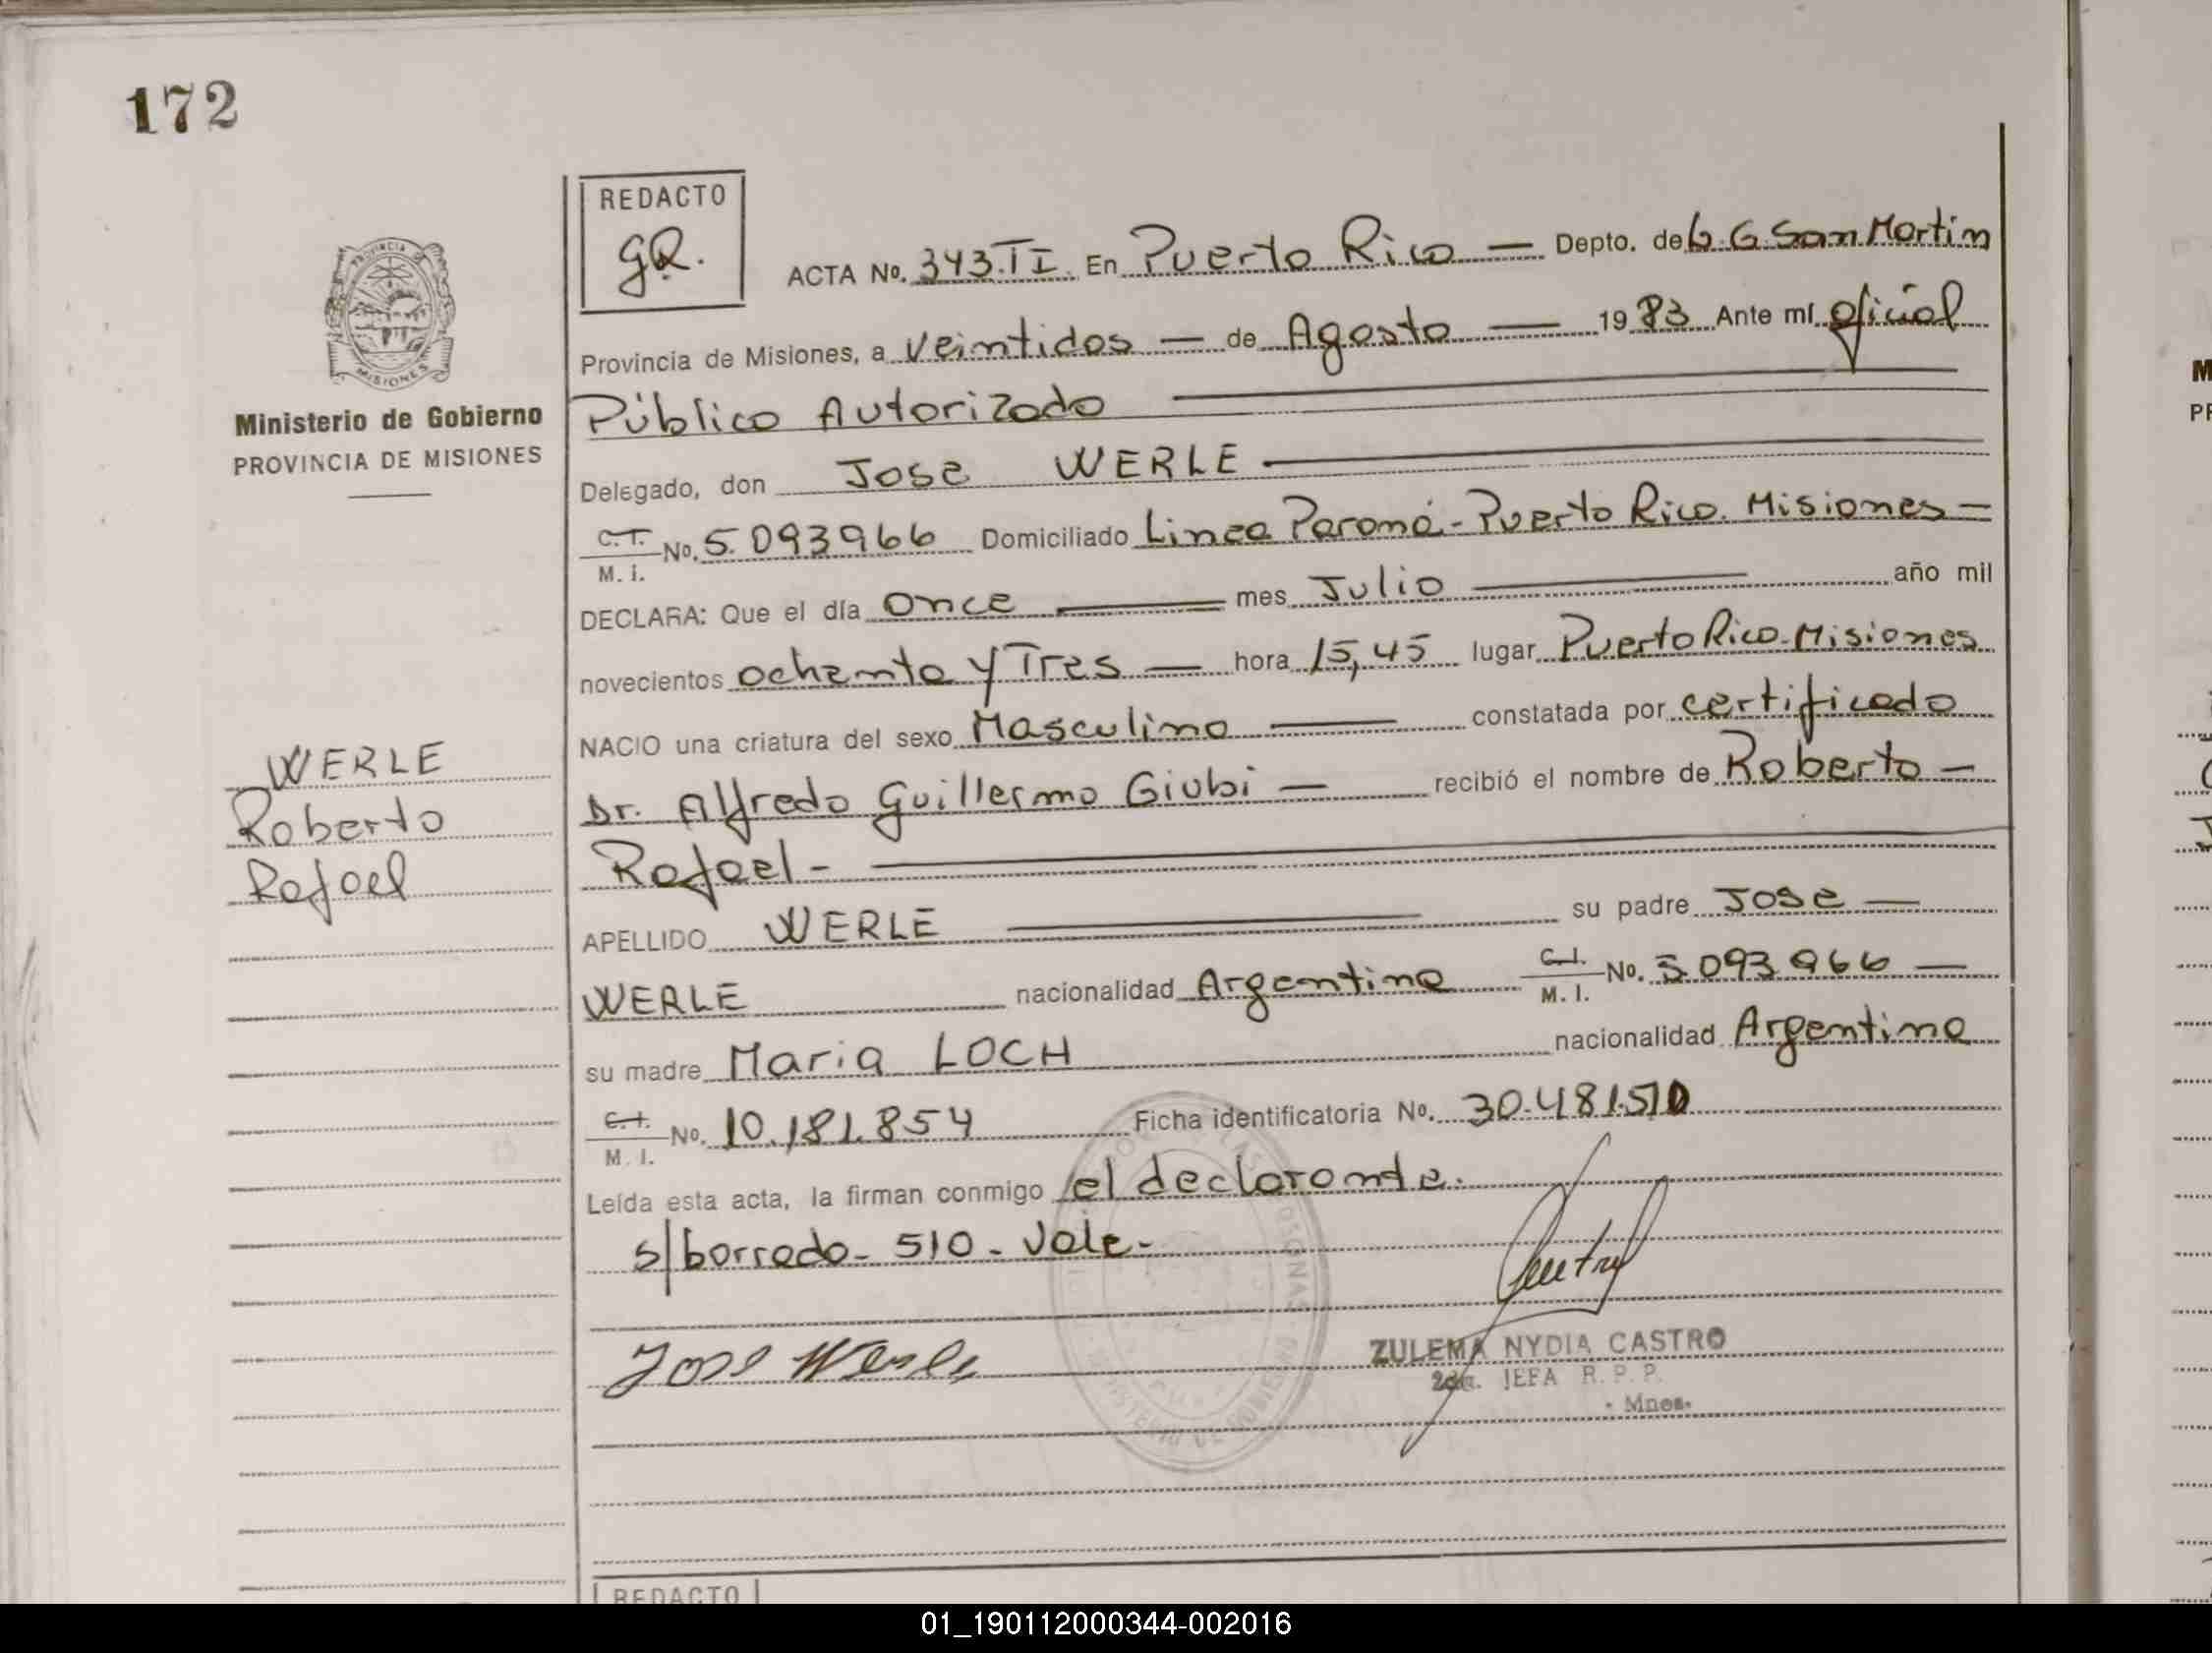 172
REDACTO
GR.
ACTA No. 343.TI. En Puerto Rico — Depto. de L.G. San Martin
Provincia de Misiones, a veintidos — de Agosto — 1983 Ante mí oficial
Público Autorizado
Ministerio de Gobierno
PROVINCIA DE MISIONES
Delegado, don Jose WERLE
C.I. M. I. No. 5.093966 Domiciliado Linea Paraná - Puerto Rico. Misiones —
DECLARA: Que el día once — mes Julio — año mil
novecientos ochenta y Tres — hora 15,45 lugar Puerto Rico - Misiones
NACIO una criatura del sexo Masculino — constatada por certificado
Dr. Alfredo Guillermo Giubi — recibió el nombre de Roberto —
Rafael -
WERLE
Roberto
Rafael
APELLIDO WERLE — su padre Jose —
WERLE nacionalidad Argentina C.I. M. I. No. 5.093966 —
su madre Maria LOCH nacionalidad Argentina
C.I. M. I. No. 10.181.854 Ficha identificatoria No. 30.481.510
Leída esta acta, la firman conmigo el declarante.
s/borrado - 510 - Vale -
Jose Werle
ZULEMA NYDIA CASTRO
2da. JEFA R. P. P.
- Mnes.
REDACTO
01_190112000344-002016